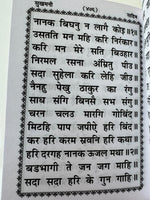 सुखमनी (४५८) साहिब
नानक बिघनु न लागै कोइ ॥१॥
उसतति मन महि करि निरंकार
करि मन मेरे सति बिउहार
निरमल रसना अंम्रितु पीउ
सदा सुहेला करि लेहि जीउ
नैनहु पेखु ठाकुर का रंगु
साध संगि बिनसै सभ संगु
चरन चलउ मारगि गोबिंद
मिटहि पाप जपीऐ हरि बिंद
कर हरि करम स्रवनि हरि कथा
हरि दरगह नानक ऊजल मथा ॥२॥
बडभागी ते जन जग माहि
सदा सदा हरि के गुन गाहि